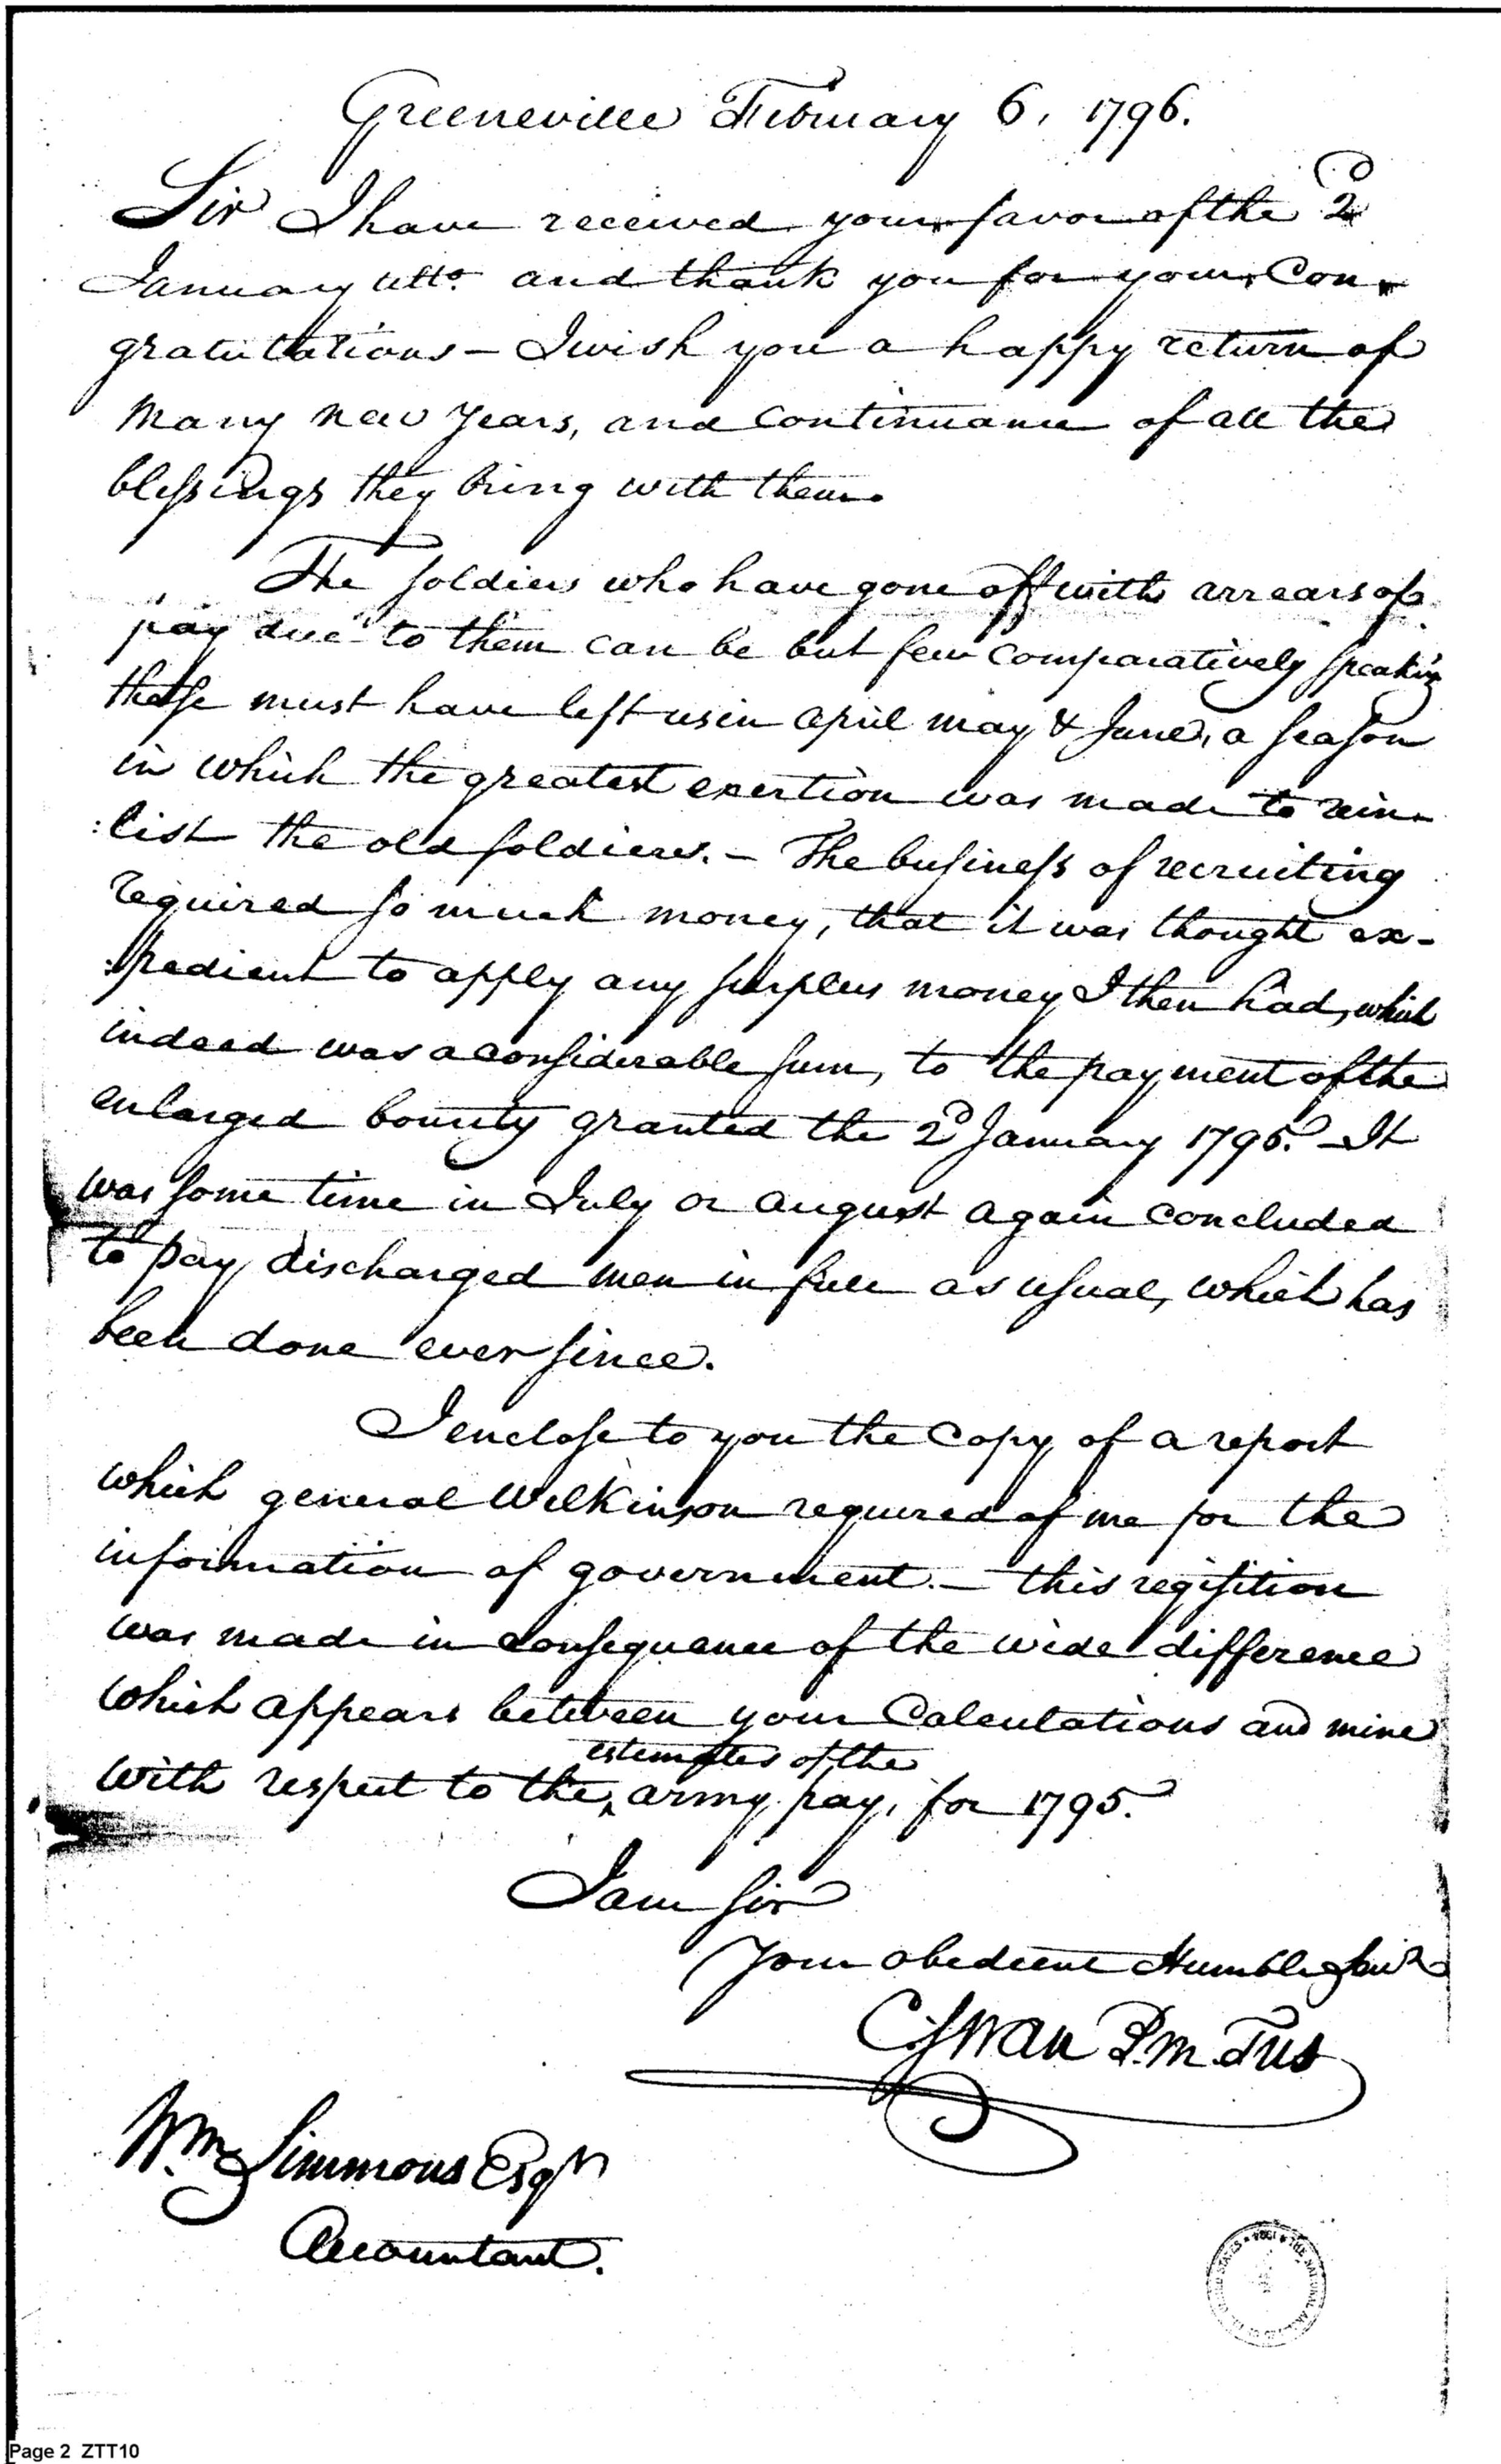 Greeneville February 6, 1796.
Sir I have received your favor of the 2d
January ulto. and thank you for your Con-
gratulations – I wish you a happy return of
many new years, and continuance of all the
blessings they bring with them.
The soldiers who have gone off with arrears of
pay due to them can be but few comparatively speaking
these must have left us in april may & June, a season
in which the greatest exertion was made to rein-
:list the old soldiers. – The business of recruiting
required so much money, that it was thought ex-
:pedient to apply any surplus money I then had, which
indeed was a considerable sum, to the payment of the
enlarged bounty granted the 2d January 1795. – It
was some time in July or august again concluded
to pay discharged men in full as usual, which has
been done ever since.
I enclose to you the Copy of a report
which general Wilkinson required of me for the
information of government. – this reqisition
was made in consequence of the wide difference
which appears between your Calculations and mine
estimates of the
with respect to the army pay, for 1795.
I am sir
Your obedient Humble Servt
C. Swan P.M. Tus
Wm Simmons Esqr
Accountant.
Page 2 ZTT10